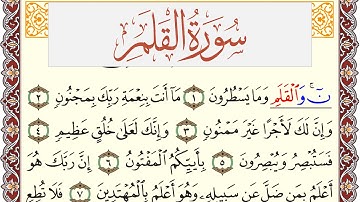 سُورَةُ الْقَلَمِ
نٓ ۚ وَالْقَلَمِ وَمَا يَسْطُرُونَ ١ مَا أَنتَ بِنِعْمَةِ رَبِّكَ بِمَجْنُونٍ ٢
وَإِنَّ لَكَ لَأَجْرًا غَيْرَ مَمْنُونٍ ٣ وَإِنَّكَ لَعَلَىٰ خُلُقٍ عَظِيمٍ ٤
فَسَتُبْصِرُ وَيُبْصِرُونَ ٥ بِأَييِّكُمُ الْمَفْتُونُ ٦ إِنَّ رَبَّكَ هُوَ
أَعْلَمُ بِمَن ضَلَّ عَن سَبِيلِهِ وَهُوَ أَعْلَمُ بِالْمُهْتَدِينَ ٧ فَلَا تُطِعِ